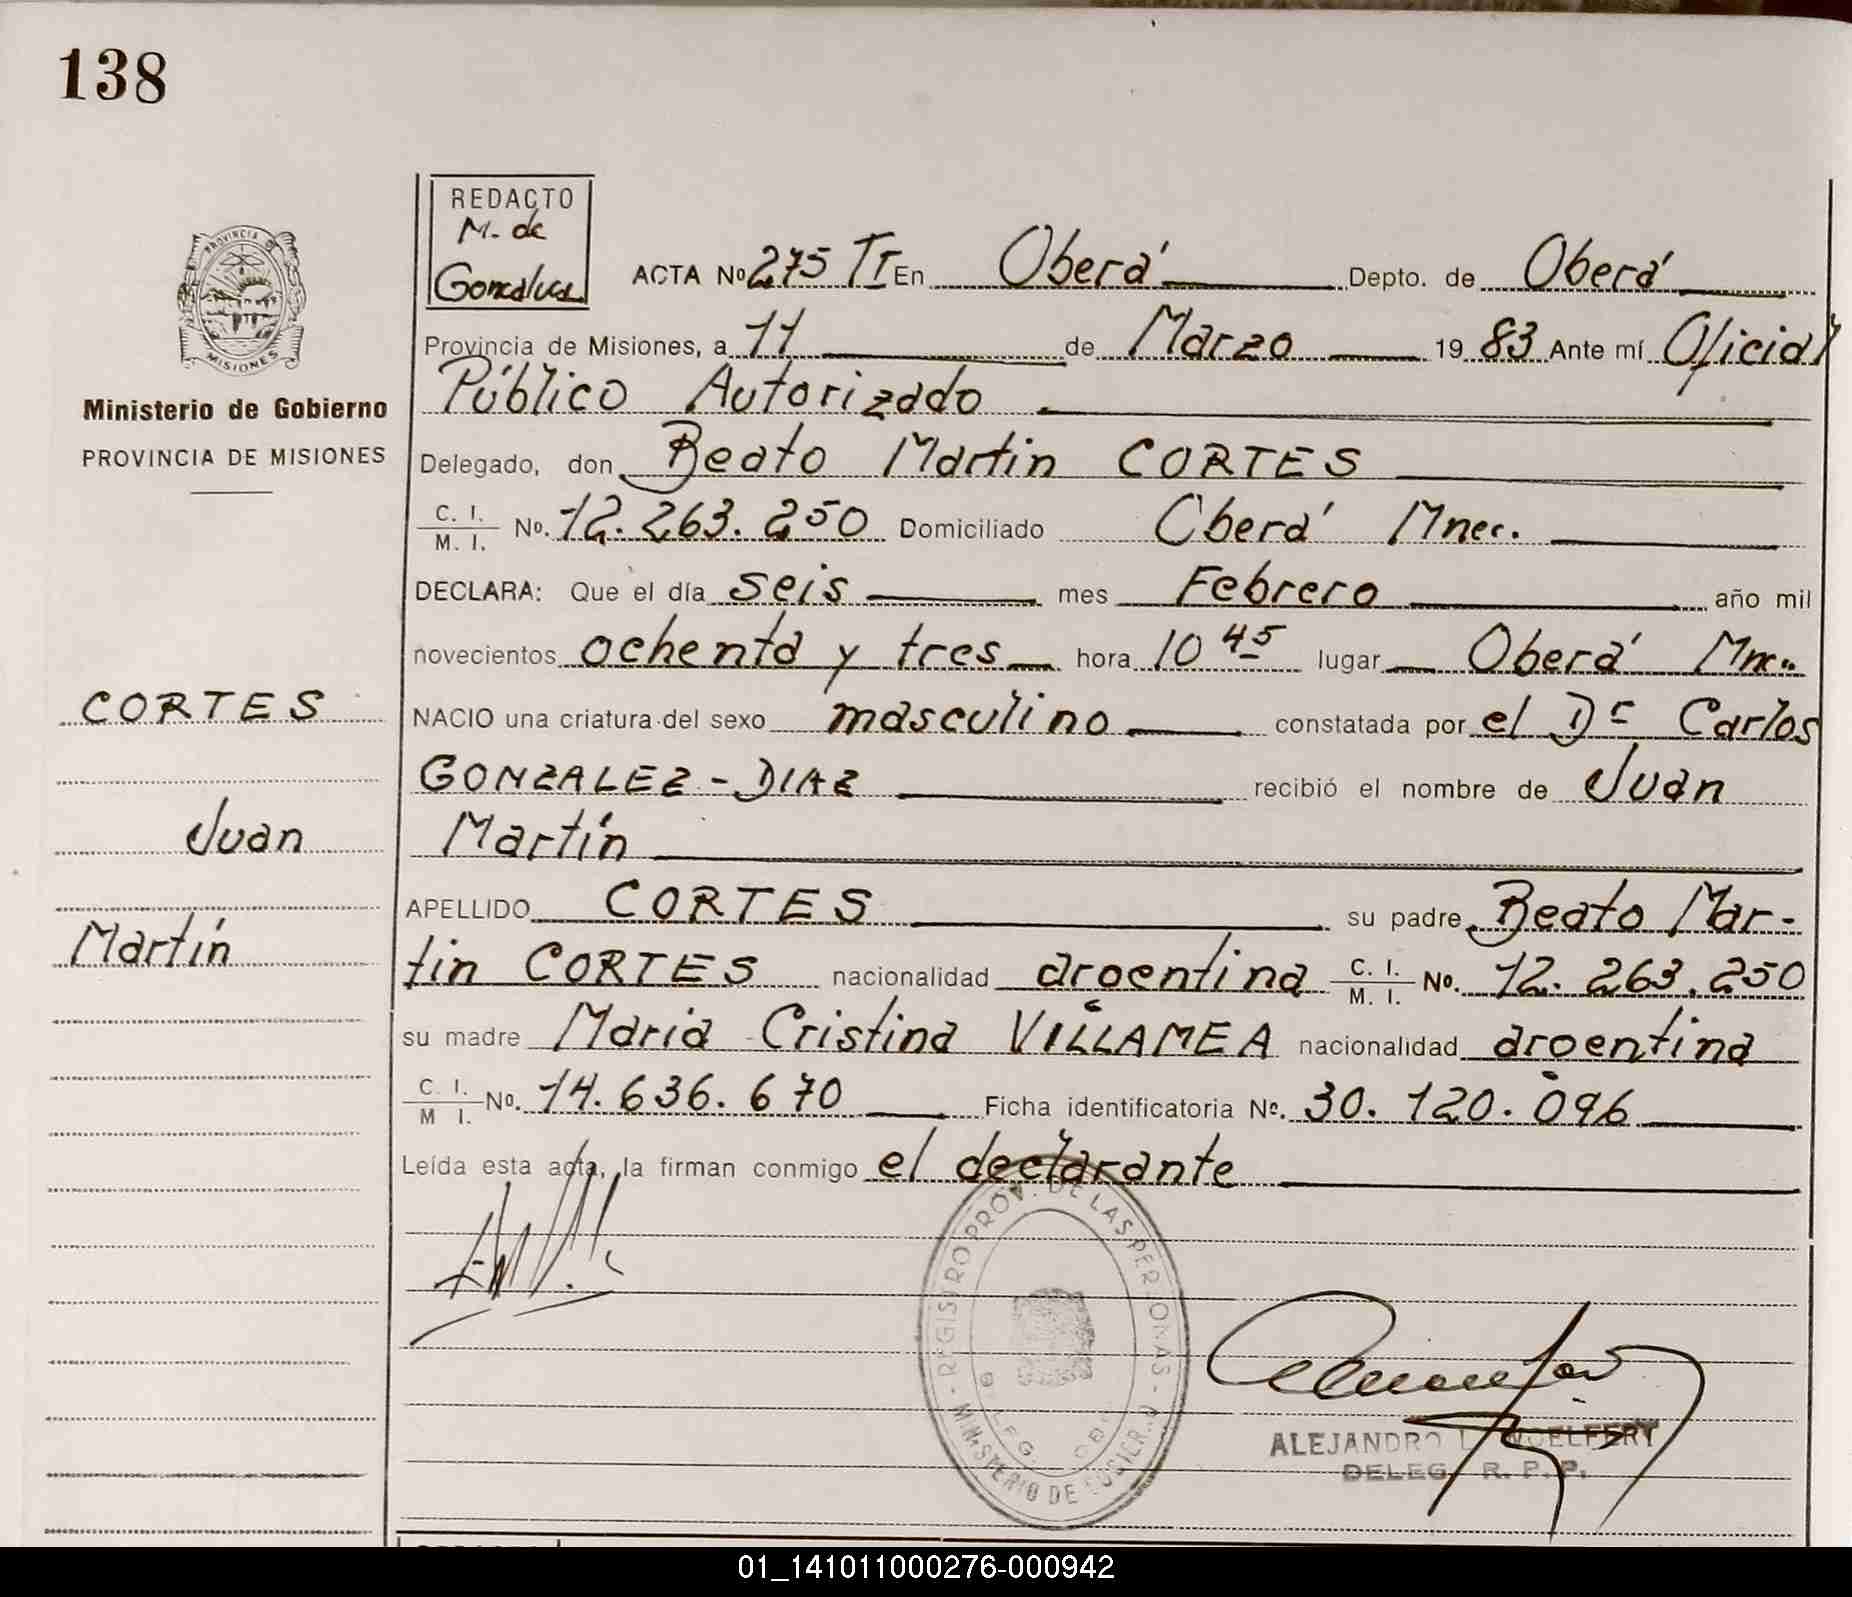 138
REDACTO
M. de
PROVINCIA DE
MISIONES
ACTA Nº 275 TI En Oberá Depto. de Oberá
Provincia de Misiones, a 11 de Marzo 19 83 Ante mí Oficial
Público Autorizado
Ministerio de Gobierno
PROVINCIA DE MISIONES
Delegado, don Beato Martin CORTES
C. I.
M. I. Nº. 12.263.250 Domiciliado Oberá Mnes.
DECLARA: Que el día seis mes Febrero año mil
novecientos ochenta y tres hora 10 45 lugar Oberá Mnes.
CORTES
NACIO una criatura del sexo masculino constatada por el Dr Carlos
GONZALEZ - DIAZ recibió el nombre de Juan
Juan
Martín
APELLIDO CORTES su padre Beato Mar-
Martín
tin CORTES nacionalidad argentina C. I.
M. I. Nº. 12.263.250
su madre Maria Cristina VILLAMEA nacionalidad argentina
C. I.
M I. Nº. 14.636.670 Ficha identificatoria Nº. 30.120.096
Leída esta acta, la firman conmigo el declarante
REGISTRO PROV. DE LAS PERSONAS
MINISTERIO DE
ALEJANDRO
DELEG. R. P. P.
01_141011000276-000942